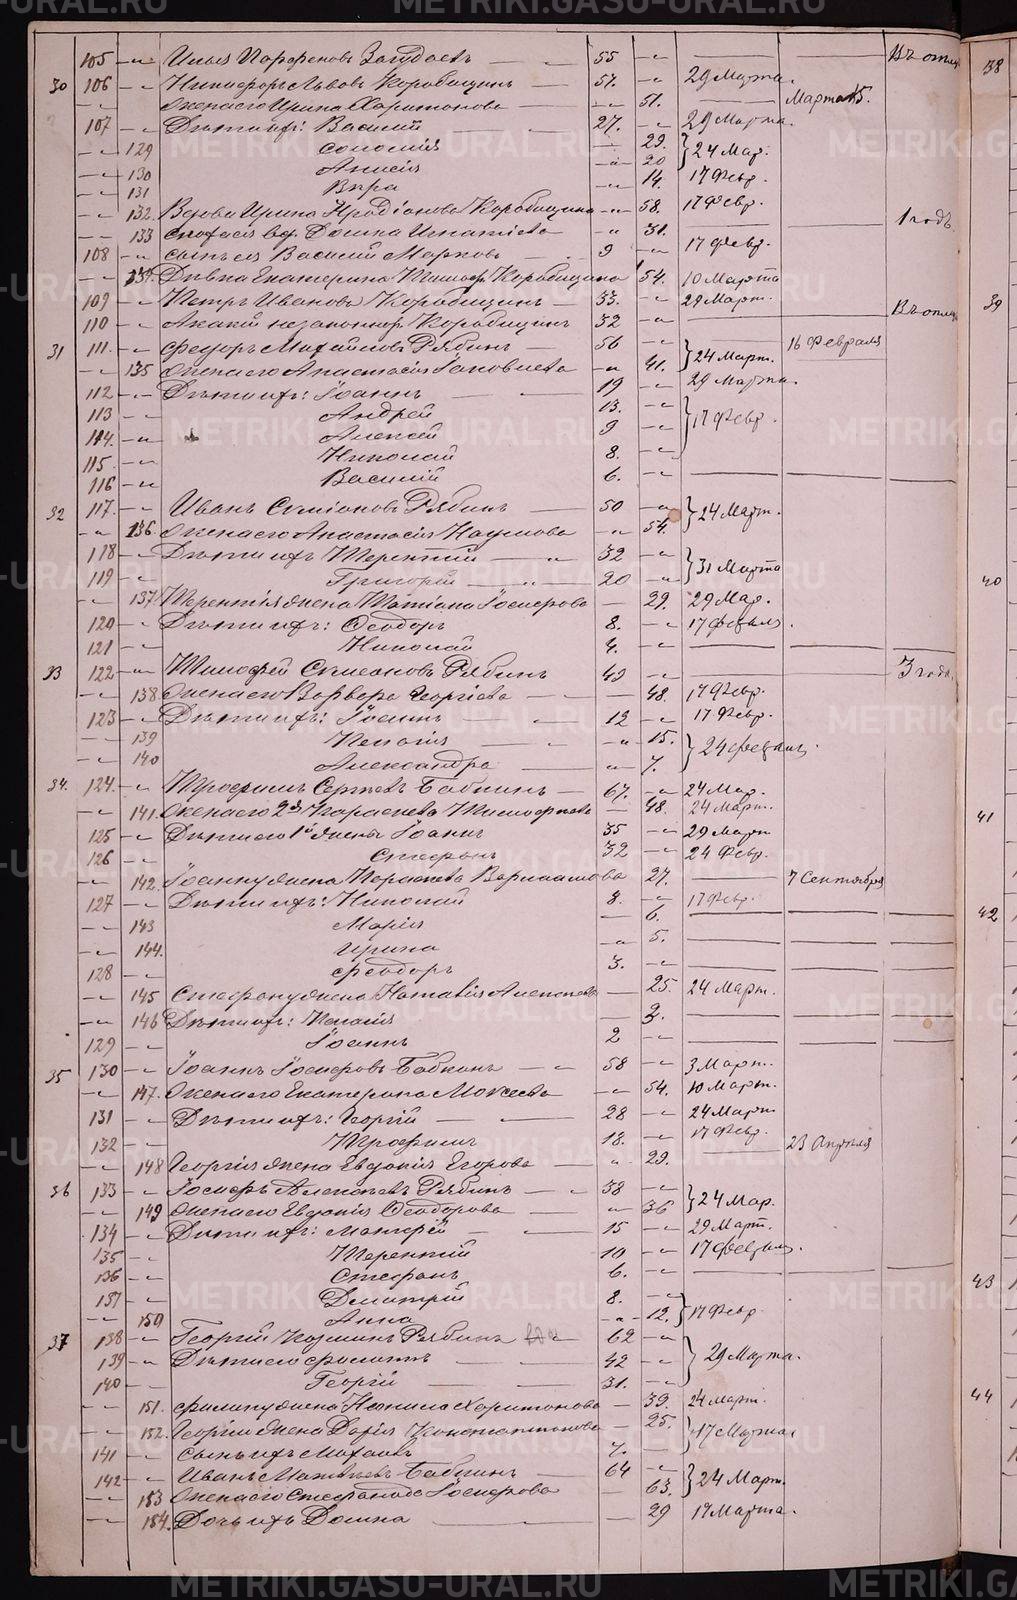 105 -"- Илья Парфенов 55 -"- Въ отлуч
30 106 -"- Никифоръ Львовъ Коробицынъ 57. -"- 29 Марта.
Жена его Ирина Харитонова -"- 51. Марта 15.
107 -"- Дѣти ихъ: Василій 27. -"- 29 Марта.
-"- 129 Соломія 29. } 24 Мар.
-"- 130 Анисія -"- 20
-"- 131 Вѣра -"- 14. 17 Февр.
-"- 132. Вдова Ирина Иродіонова Коробицына -"- 58. 17 Февр.
-"- 133 Снофа ея вд. Домна Игнатіева -"- 31. 1 годъ.
108 -"- Сынъ ея Василій Марковъ 9 -"- 17 Февр.
-"- 134. Дѣвка Екатерина Никиф. Коробицына 54. 10 Марта
109 -"- Петръ Ивановъ Коробицынъ 33. -"- 29 Март.
110 -"- Акакій незаконнор. Коробицынъ 32 -"- Въ отлуч
31 111. -"- Федоръ Михайловъ Рябинъ 56 -"- 16 Февраля
-"- 135 Жена его Анастасія Іаковлева -"- 41. } 24 Март.
112 -"- Дѣти ихъ: Іоаннъ 19 -"- 29 Марта.
113 -"- Андрей 13. -"- } 17 Февр.
114. -"- Алексей 9 -"-
115. -"- Николай 8. -"-
116 -"- Василій 6. -"-
32 117. -"- Иванъ Симіоновъ Рябинъ 50 -"- } 24 Март.
-"- 136. Жена его Анастасія Наумова -"- 54.
118 -"- Дѣти ихъ Терентій 32 -"- } 31 Марта
119 -"- Григорій 20 -"-
-"- 137 Терентія жена Татіана Іосифова 29. 29 Мар.
120 -"- Дѣти ихъ: Ѳеодоръ 8. -"- 17 февраля.
121 -"- Николай 4. -"-
33 122 -"- Тимофей Симеоновъ Рябинъ 43 -"- 3 года.
-"- 138. Жена его Варвара Георгіева 48. 17 Февр.
123 -"- Дѣти ихъ: Іоаннъ 12 -"- 17 Февр.
-"- 139 Пелагія -"- 15. } 24 февраля.
-"- 140 Александра -"- 7.
34. 124. -"- Трофимъ Сергѣевъ Бабкинъ 67. -"- 24 Мар.
-"- 141. Жена его 2я Параскева Тимофеева 48. 24 Март.
125 -"- Дѣти его 1й жены Іоаннъ 35 -"- 29 Март
126 -"- Стефанъ 32 -"- 24 Февр.
-"- 142. Іоанну жена Параскева Варлаамова 27. 7 Сентября
127 -"- Дѣти ихъ: Николай 8. -"- 17 Февр.
-"- 143 Марія 6.
-"- 144. Ирина -"- 5.
128 -"- Феодоръ 3. -"-
-"- 145 Стефану жена Наталія Алексеева 25. 24 Март.
-"- 146 Дѣти ихъ: Пелагія 2.
129 -"- Іоаннъ 2 -"-
35 130 -"- Іоаннъ Іосифовъ Бабкинъ 58 -"- 3 Март.
-"- 147. Жена его Екатерина Моисеева -"- 54. 10 Март.
131 -"- Дѣти ихъ: Георгій 28 -"- 24 Март
132 -"- Трофимъ 18. -"- 17 Февр.
-"- 148 Георгія жена Евдокія Егорова -"- 29. 23 Апрѣля
36 133 -"- Іосифъ Алексѣевъ Рябинъ 38 -"- } 24 Мар.
-"- 149 Жена его Евдокія Ѳеодорова -"- 36
134 -"- Дѣти ихъ: Матфей 15 -"- 29 Март.
135 -"- Терентій 10 -"- 17 февраля.
136 -"- Стефанъ 6. -"-
137 -"- Димитрій 8. -"- } 17 Февр.
-"- 150 Анна -"- 12.
37 138 -"- Георгій Козминъ Рябинъ 62 -"- } 29 Марта.
139 -"- Дѣти его Филиппъ 42 -"-
140 -"- Георгій 31. -"-
-"- 151. Филиппу жена Харитонова 39. 24 Март.
-"- 152. Георгія жена Дарія Константинова 25. } 17 Марта
141 -"- Сынъ ихъ Михаилъ 7. -"-
142 -"- Иванъ Матвѣевъ Бабкинъ 64 -"- } 24 Март.
-"- 153 Жена его Стефанида Іосифова 63.
-"- 154. Дочь ихъ Домна 29 17 Марта.
38
39
40
41
42
43
44
METRIKI.GASO-URAL.RU